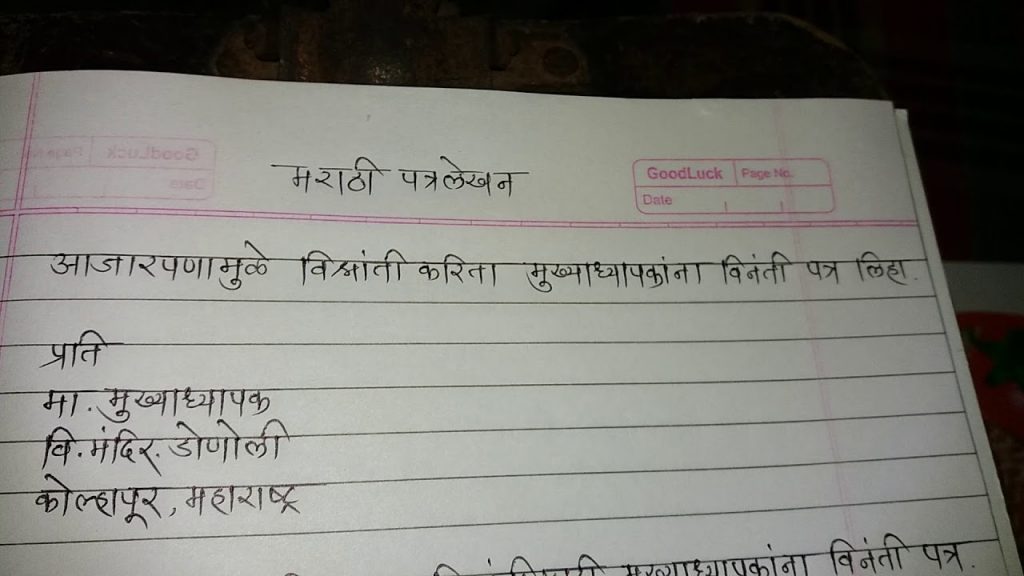 मराठी पत्रलेखन
GoodLuck Page No.
Date
आजारपणामुळे विश्रांती करिता मुख्याध्यापकांना विनंती पत्र लिहा.
प्रति
मा. मुख्याध्यापक
वि. मंदिर. डोणोली
कोल्हापूर, महाराष्ट्र
मुख्याध्यापकांना विनंती पत्र.